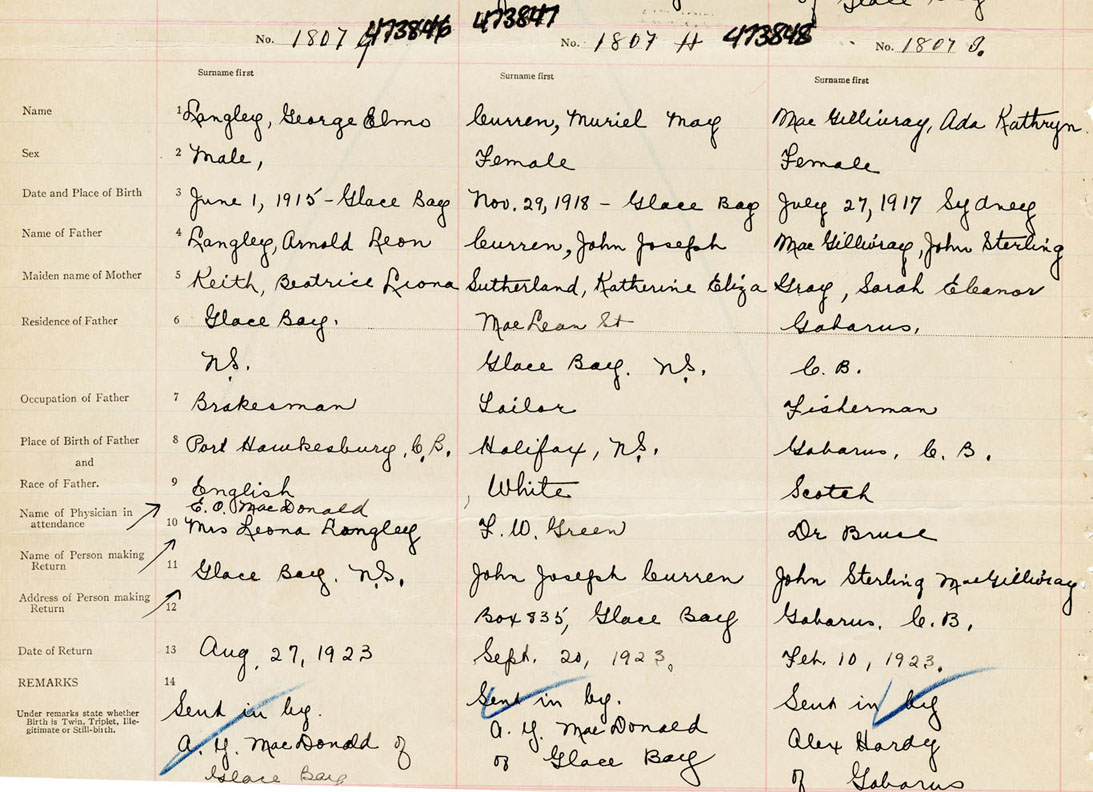 of Glace Bay
473846 473847 473848
No. 1807 G No. 1807 H No. 1807 I.
Surname first Surname first Surname first
Name 1 Langley, George Elmo Curren, Muriel May Mac Gillivray, Ada Kathryn.
Sex 2 Male, Female Female
Date and Place of Birth 3 June 1, 1915 - Glace Bay Nov. 29, 1918 - Glace Bay July 27, 1917 Sydney
Name of Father 4 Langley, Arnold Leon Curren, John Joseph Mac Gillivray, John Sterling
Maiden name of Mother 5 Keith, Beatrice Leona Sutherland, Katherine Eliza Gray, Sarah Eleanor
Residence of Father 6 Glace Bay. MacLean St Gabarus,
N.S. Glace Bay. N.S. C. B.
Occupation of Father 7 Brakesman Sailor Fisherman
Place of Birth of Father 8 Port Hawkesbury, C.B. Halifax, N.S. Gabarus, C. B.
and
Race of Father. 9 English White Scotch
E. O. MacDonald
Name of Physician in
attendance 10 Mrs Leona Langley F. W. Green Dr Bruce
Name of Person making
Return 11 Glace Bay. N.S. John Joseph Curren John Sterling MacGillivray
Address of Person making
Return 12 Box 835, Glace Bay Gabarus, C.B.
Date of Return 13 Aug, 27, 1923 Sept. 20, 1923. Feb. 10, 1923.
REMARKS 14
Sent in by. Sent in by. Sent in by
Under remarks state whether
Birth is Twin, Triplet, Ille-
gitimate or Still-birth.
A. Y. MacDonald of A. Y. MacDonald Alex Hardy
Glace Bay of Glace Bay of Gabarus